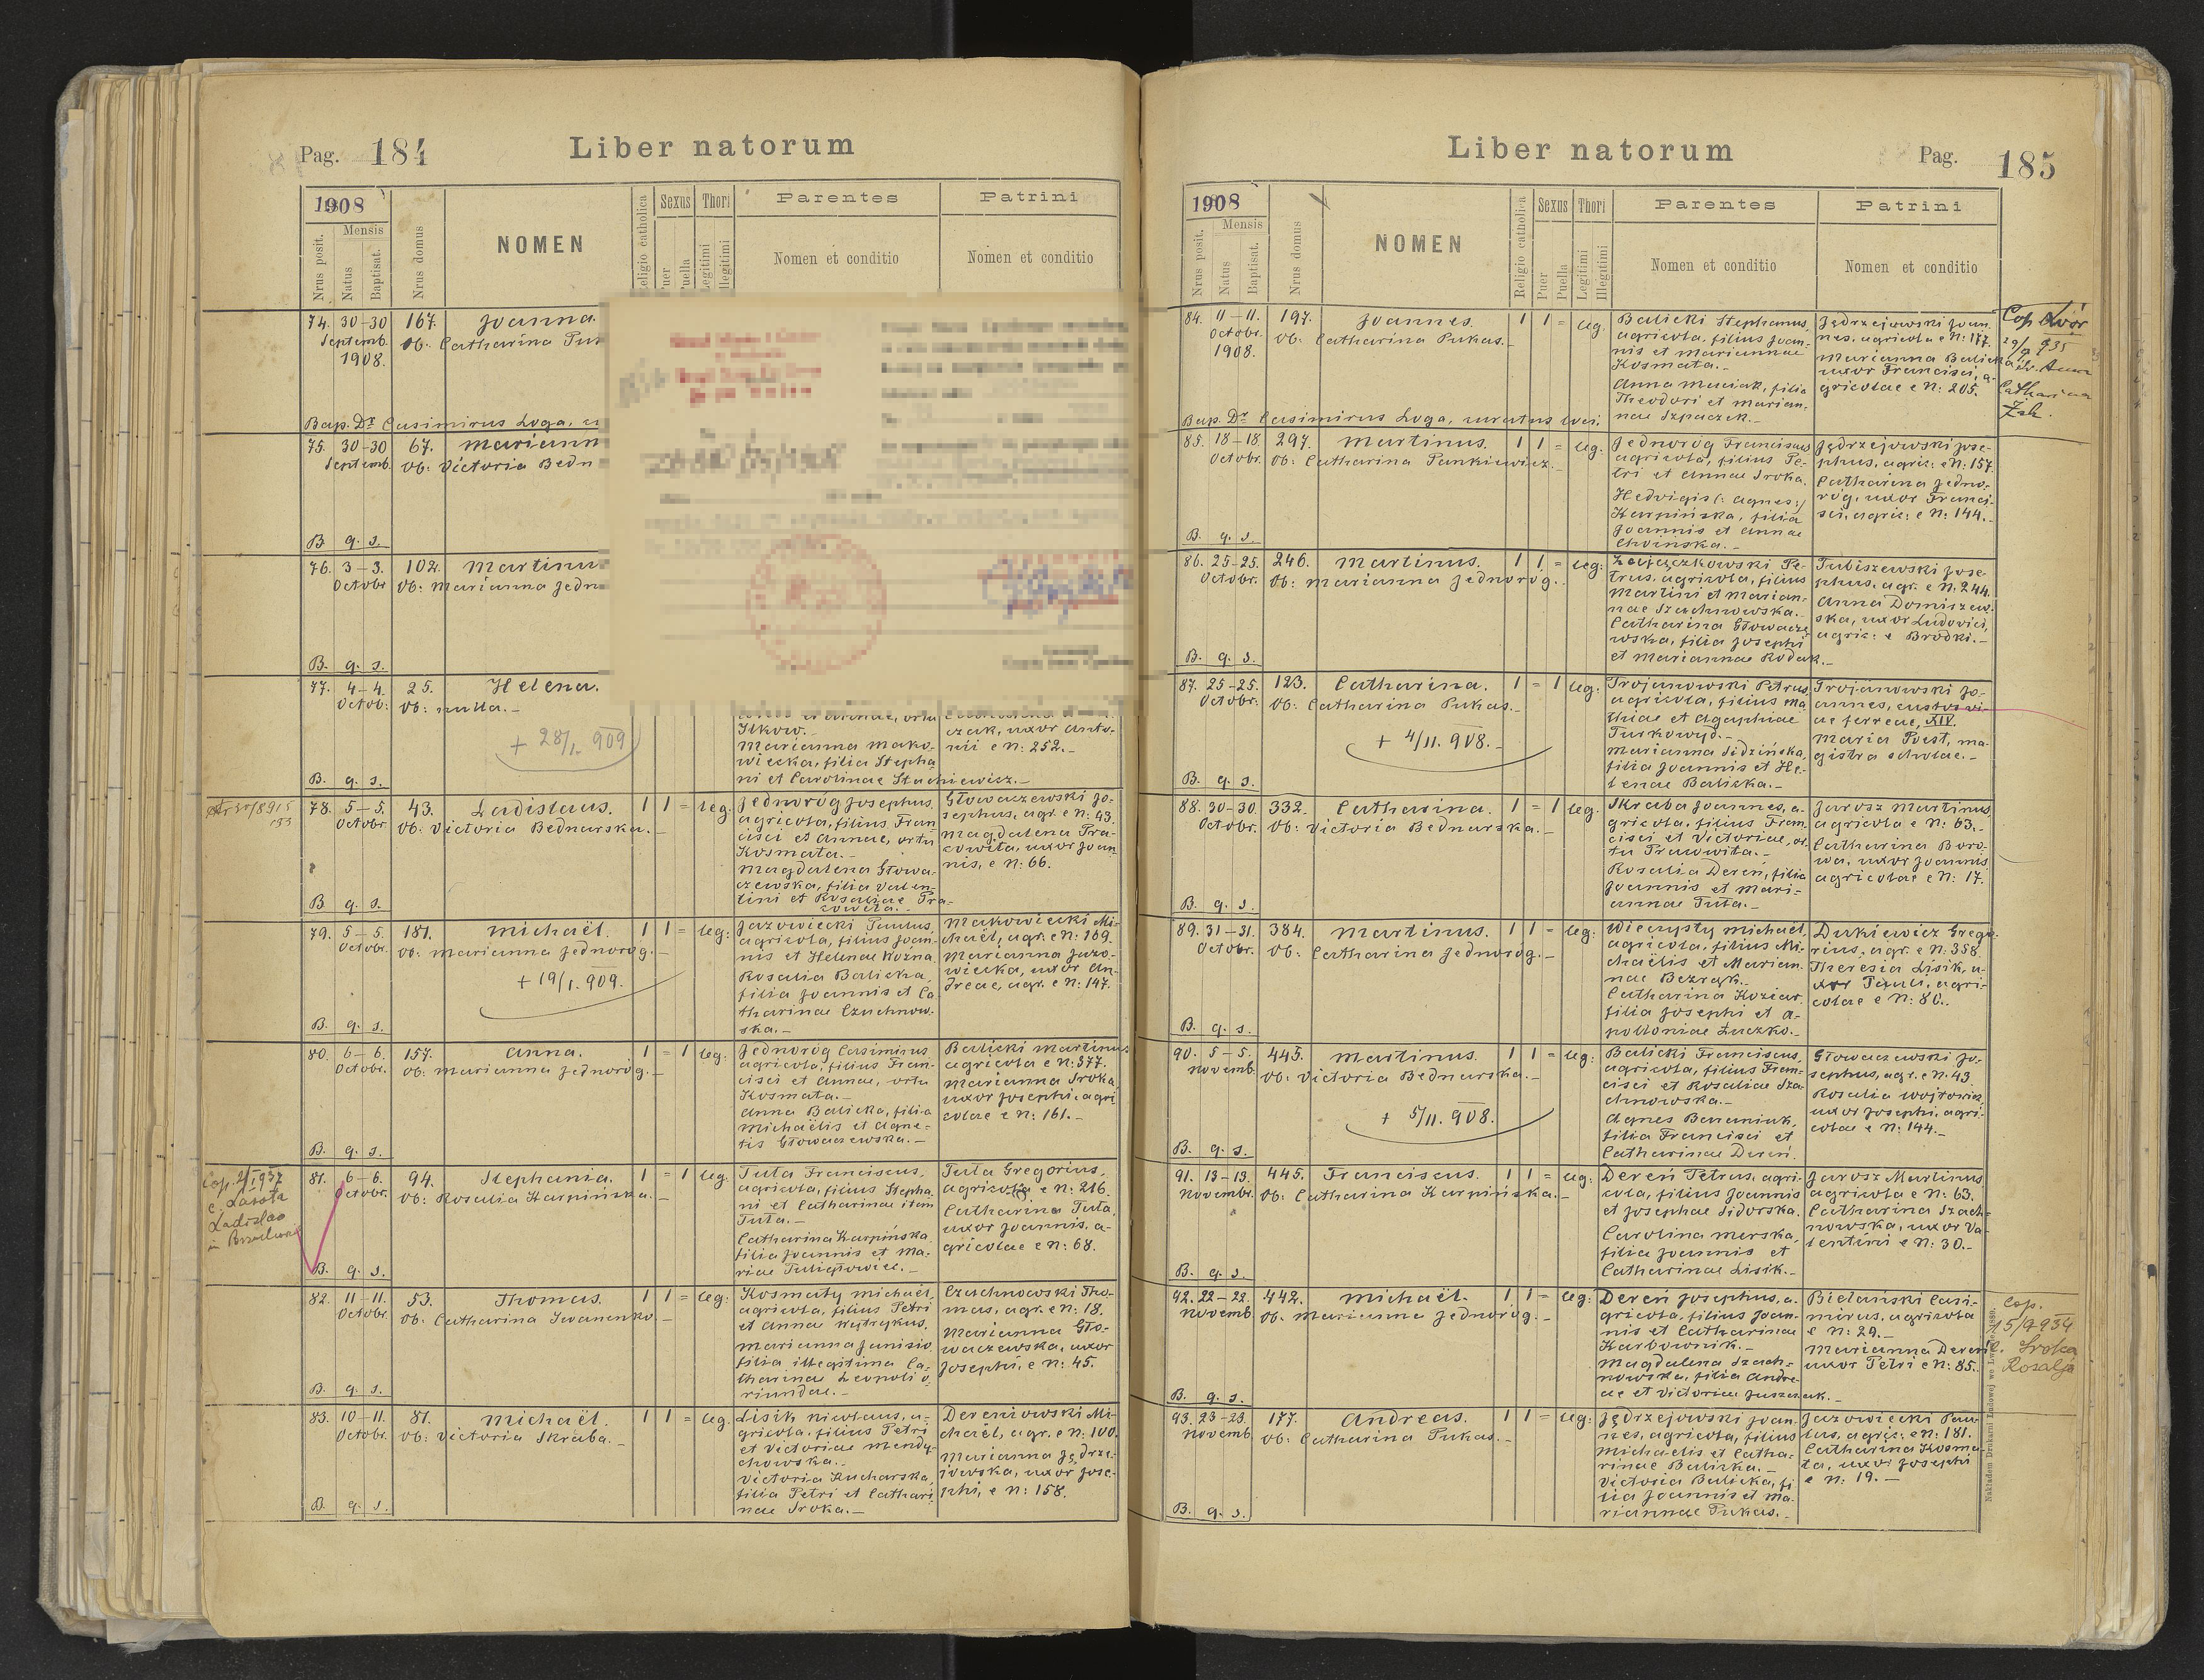 Pag. 184
Liber natorum
1908
Nrus posit.
Mensis
Natus
Baptisat.
Nrus domus
NOMEN
Religio catholica
Sexus
Puer
Puella
Thori
Legitimi
Illegitimi
Parentes
Nomen et conditio
Patrini
Nomen et conditio
74. 30-30 167. Joanna
Septemb. Ob: Catharina
1908.
Bap. Dr Casimirus Loga,
75. 30-30 67.
Septemb. Ob: Victoria
B. q. s.
76. 3-3. 102.
Octobr. Ob: Marianna
B. q. s.
77. 4-4. 25. Helena.
Octob: Ob: nulla.-
+ 28/1. 909
Ilkow.-
Marianna Mako-
wiecka, filia Stepha
ni et Carolinae Stachiewicz.-
czak, uxor Anto-
nii e N: 252.-
B. q. s.
78. 5-5. 43. Ladislaus. 1 1 = leg:
Octobr. Ob: Victoria Bednarska.-
Jednoróg Josephus,
agricola, filius Fran
cisci et Annae, ortu
Kosmata.-
Magdalena Głowa-
czewska, filia Valen-
tini et Rosaliae Tra-
cowita.-
Głowaczewski Jo-
sephus, agr. e N: 43.
Magdalena Tra-
cowita, uxor Joan-
nis, e N: 66.
B. q. s.
79. 5-5. 181. Michaël. 1 1 = leg:
Octobr. Ob: Marianna Jednoróg.-
+ 19/1. 909.
Jazowiecki Paulus,
agricola, filius Joan-
nis et Helenae Woźna.
Rosalia Balicka,
filia Joannis et Ca
tharinae Czuchnow-
ska.-
Makowiecki Mi-
chaël, agr. e N: 169.
Marianna Jazo-
wiecka, uxor An-
dreae, agr. e N: 147.
B. q. s.
80. 6-6. 157. Anna. 1 = 1 leg:
Octobr. Ob: Marianna Jednoróg.-
Jednoróg Casimirus,
agricola, filius Fran-
cisci et Annae, ortu
Kosmata.-
Anna Balicka, filia
Michaëlis et Agne-
tis Głowaczewska.-
Balicki Martinus
agricola e N: 377.
Marianna Sroka,
uxor Josephi, agri
colae e N: 161.-
B. q. s.
Cop. 2/I 937
c. Lasota
Ladislao
81. 6-6. 94. Stephania. 1 = 1 leg:
Octobr. Ob: Rosalia Karpińska.-
Tuta Franciscus,
agricola, filius Stepha-
ni et Catharinae item
Tuta.-
Catharina Karpińska
filia Joannis et Ma-
riae Tuligłowicz.-
Tuta Gregorius,
agricola, e N: 216.
Catharina Tuta,
uxor Joannis, a-
gricolae e N: 68.
B. q. s.
82. 11-11. 53. Thomas. 1 1 = leg:
Octobr. Ob: Catharina Iwanenko.-
Kosmaty Michaël,
agricola, filius Petri
et Annae Wytrykus.
Marianna Janisio,
filia illegitima Ca-
tharinae Leopoli o-
riundae.-
Czuchnowski Tho-
mas, agr. e N: 18.
Marianna Gło-
waczewska, uxor
Josephi, e N: 45.
B. q. s.
83. 10-11. 81. Michaël. 1 1 = leg.
Octobr. Ob: Victoria Skraba.-
Lisik Nicolaus, a-
gricola, filius Petri
et Victoriae Mendy-
chowska.-
Victoria Kucharska,
filia Petri et Cathari-
nae Sroka.-
Dereniowski Mi-
chaël, agr. e N: 100.
Marianna Jędrze-
jowska, uxor Jose-
phi, e N: 158.
B. q. s.
Liber natorum
Pag. 185
1908
Nrus posit.
Mensis
Natus
Baptisat.
Nrus domus
NOMEN
Religio catholica
Sexus
Puer
Puella
Thori
Legitimi
Illegitimi
Parentes
Nomen et conditio
Patrini
Nomen et conditio
84. 11-11. 197. Joannes. 1 1 = leg.
Octobr. Ob: Catharina Pukas.-
1908.
Balicki Stephanus,
agricola, filius Joan-
nis et Mariannae
Kosmata.-
Anna Maciak, filia
Theodori et Marian-
nae Szpaczek.-
Jędrzejowski Joan-
nes, agricola e N: 177.
Marianna Balicka
uxor Francisci, a-
gricolae e N: 205.
Cop.
Catharina
Bap. Dr Casimirus Loga, curatus loci.
85. 18-18 297. Martinus. 1 1 = leg:
Octobr. Ob: Catharina Pankiewicz.-
Jednoróg Franciscus
agricola, filius Pe-
tri et Annae Sroka.
Hedvigis (: Agnes :)
Karpińska, filia
Joannis et Annae
Choińska.-
Jędrzejowski Jose-
phus, agric: e N: 157.
Catharina Jedno-
róg, uxor Franci-
sci, agric: e N: 144.-
B. q. s.
86. 25-25. 246. Martinus. 1 1 = leg:
Octobr. Ob: Marianna Jednoróg.-
Zajączkowski Pe-
trus, agricola, filius
Martini et Marian-
nae Szachnowska.-
Catharina Głowacze
wska, filia Josephi
et Mariannae Kodak.-
Tabiszewski Jose-
phus, agr. e N: 244.
Anna Domiszew-
ska, uxor Ludovici,
agric: e Brodki.-
B. q. s.
87. 25-25. 123. Catharina. 1 = 1 leg:
Octobr. Ob: Catharina Pukas.-
+ 4/11. 908.-
Trojanowski Petrus,
agricola, filius Ma
thiae et Agaphiae
Turkowyd.-
Marianna Sidzińska,
filia Joannis et He-
lenae Balicka.-
Trojanowski Jo-
annes, custos vi-
ae ferreae, XIV.
Maria Poest, ma-
gistra scholae.-
B. q. s.
88. 30-30. 332. Catharina. 1 = 1 leg.
Octobr. Ob: Victoria Bednarska.-
Skraba Joannes, a-
gricola, filius Fran-
cisci et Victoriae, or-
tu Tracowita.-
Rosalia Dereń, filia
Joannis et Mari-
annae Tuta.-
Jarosz Martinus,
agricola e N: 63.
Catharina Boro-
wa, uxor Joannis
agricolae e N: 17.
B. q. s.
89. 31-31. 384. Martinus. 1 1 = leg:
Octobr. Ob: Catharina Jednoróg.-
Wieczysty Michaël,
agricola, filius Mi-
chaëlis et Marian-
nae Bezrąk.-
Catharina Koziar,
filia Josephi et A-
polloniae Łaczko.-
Dukiewicz Grego-
rius, agr. e N: 358.
Theresia Lisik, u-
xor Pauli, agri-
colae e N: 80.
B. q. s.
90. 5-5. 445. Martinus. 1 1 = leg:
Novemb. Ob: Victoria Bednarska.-
+ 5/11. 908.
Balicki Franciscus,
agricola, filius Fran-
cisci et Rosaliae Sza-
chnowska.-
Agnes Bananiuk,
filia Francisci et
Catharinae Dereń.
Głowaczewski Jo-
sephus, agr. e N: 43
Rosalia Wojtowicz,
uxor Josephi, agri-
colae e N: 144.-
B. q. s.
91. 13-13. 445. Franciscus. 1 1 = leg:
Novembr. Ob: Catharina Karpińska.-
Dereń Petrus, agri-
cola, filius Joannis
et Josephae Sidorska.
Carolina Merska,
filia Joannis et
Catharinae Lisik.-
Jarosz Martinus
agricola e N: 63.
Catharina Szach-
nowska, uxor Va-
lentini e N: 30.-
B. q. s.
92. 22-22. 442. Michaël. 1 1 = leg:
Novemb. Ob: Marianna Jednoróg.-
Dereń Josephus, a-
gricola, filius Joan-
nis et Catharinae
Karbownik.-
Magdalena Szach-
nowska, filia Andre-
ae et Victoriae Juszczak.-
Bielański Casi-
mirus, agricola
e N: 29.-
Marianna Dereń
uxor Petri e N: 85.
Cop.
15/9 934
c. Sroka
Rosalja
B. q. s.
93. 23-23. 177. Andreas. 1 1 = leg:
Novemb. Ob: Catharina Pukas.-
Jędrzejowski Joan-
nes, agricola, filius
Michaelis et Catha-
rinae Balicka.-
Victoria Balicka, fi
lia Joannis et Ma-
riannae Pukas.-
Jazowiecki Pau-
lus, agric: e N: 181.
Catharina Kosma-
ta, uxor Josephi
e N: 19.-
B. q. s.
Nakładem Drukarni Ludowej we Lwowie 1889.